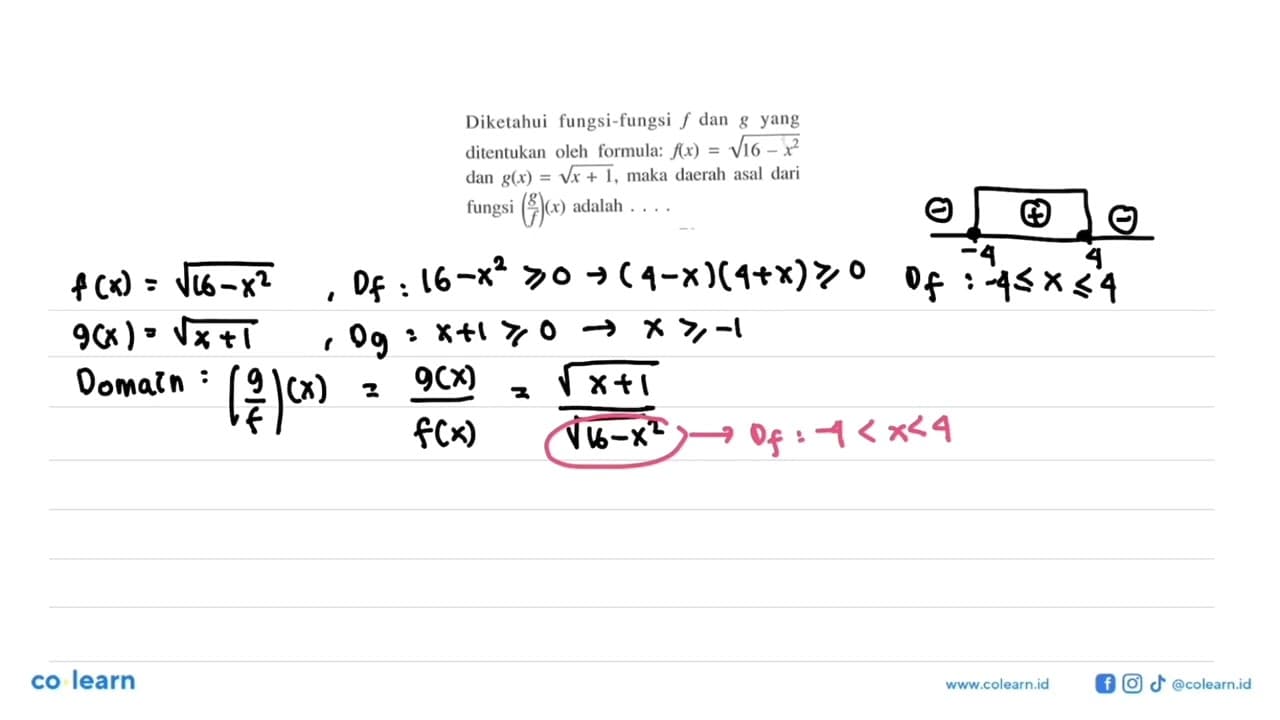 Diketahui fungsi-fungsi f dan g yang
ditentukan oleh formula: f(x) = √(16 – x²)
dan g(x) = √(x + 1), maka daerah asal dari
fungsi (g/f)(x) adalah . . . .
⊖ ⊕ ⊖
-4 4
f(x) = √(16-x²) , Df : 16-x² ≥ 0 → (4-x)(4+x) ≥ 0 Df : -4 ≤ x ≤ 4
g(x) = √(x+1) , Dg : x+1 ≥ 0 → x ≥ -1
Domain : (g/f)(x) = g(x)/f(x) = √(x+1)/√(16-x²) → Df : -4 < x < 4
co learn
www.colearn.id
@colearn.id